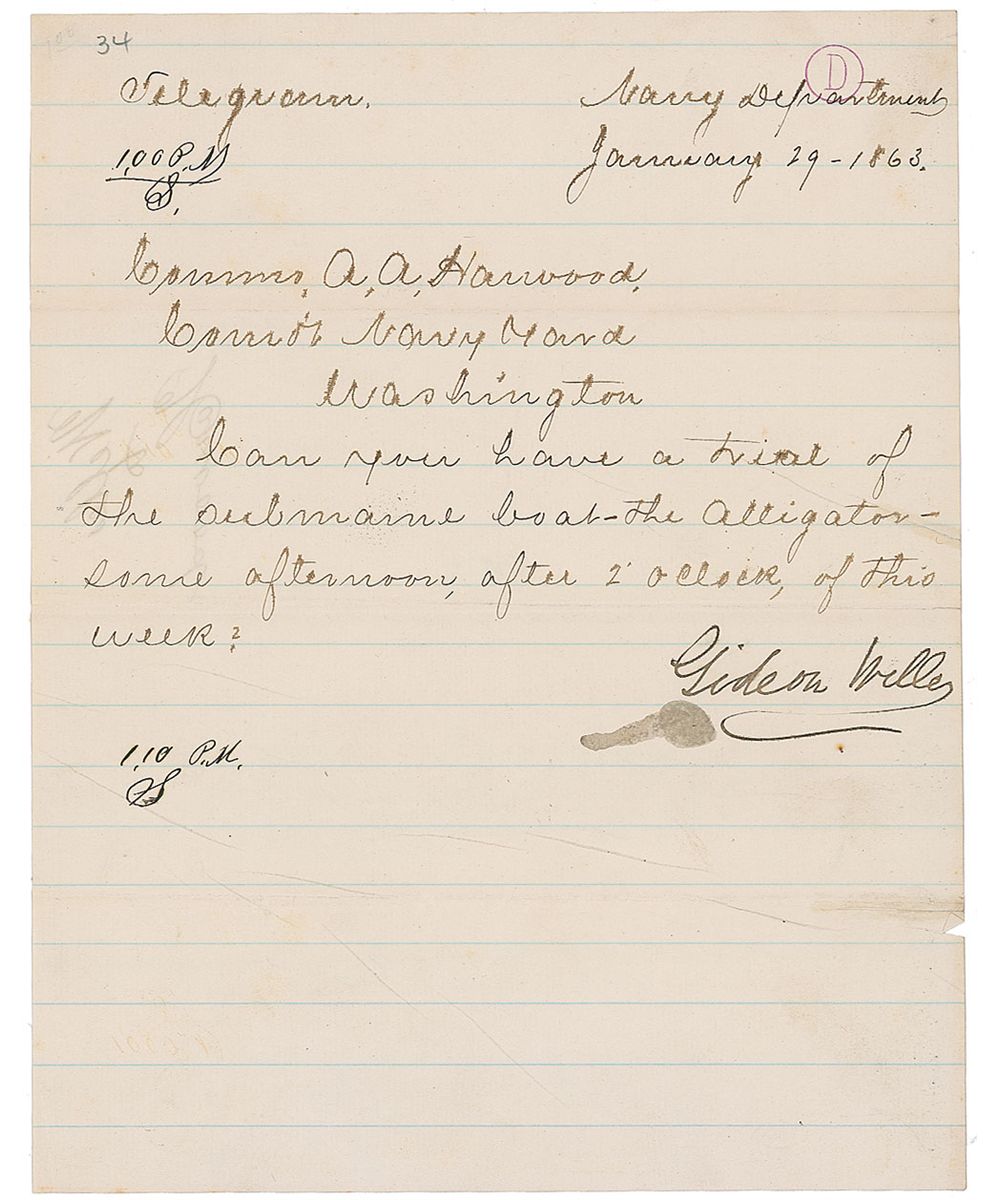 34
D
Telegram. Navy Department
1,00 P.M January 29-1863.
S.
Commo. A. A. Harwood,
Comd't Navy Yard
Washington
Can you have a trial of
the submaine boat-the Alligator-
some afternoon, after 2 o'clock, of this
week?
Gideon Welles
1,10 P.M.
S